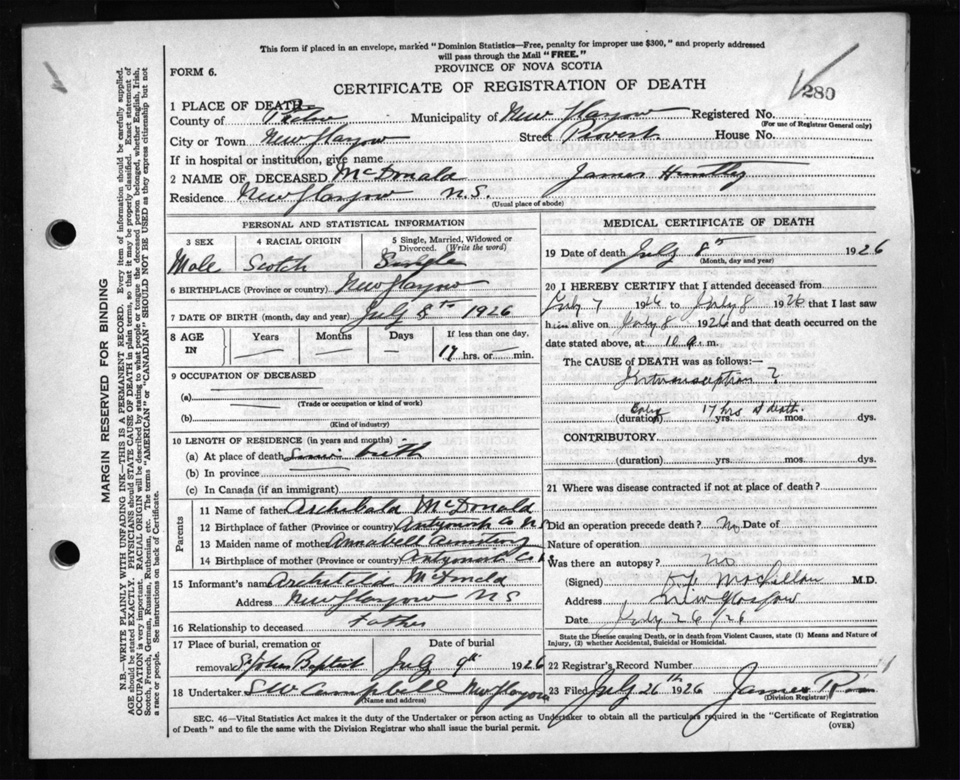 This form if placed in an envelope, marked "Dominion Statistics—Free, penalty for improper use $300," and properly addressed
will pass through the Mail "FREE."
PROVINCE OF NOVA SCOTIA
FORM 6.
CERTIFICATE OF REGISTRATION OF DEATH
280
1 PLACE OF DEATH
County of Pictou Municipality of New Glasgow Registered No.
(For use of Registrar General only)
City or Town New Glasgow Street Provost House No.
If in hospital or institution, give name
2 NAME OF DECEASED McDonald James Huntley
Residence New Glasgow N.S.
(Usual place of abode)
PERSONAL AND STATISTICAL INFORMATION
3 SEX 4 RACIAL ORIGIN 5 Single, Married, Widowed or
Divorced. (Write the word)
Male Scotch Single
6 BIRTHPLACE (Province or country) New Glasgow
7 DATE OF BIRTH (month, day and year) July 8th 1926
8 AGE
IN
Years Months Days If less than one day,
17 hrs. or min.
9 OCCUPATION OF DECEASED
(a)
(Trade or occupation or kind of work)
(b)
(Kind of industry)
10 LENGTH OF RESIDENCE (in years and months)
(a) At place of death Since birth
(b) In province
(c) In Canada (if an immigrant)
Parents
11 Name of father Archibald McDonald
12 Birthplace of father (Province or country) Antigonish Co N.S
13 Maiden name of mother Annabell
14 Birthplace of mother (Province or country) Antigonish Co
15 Informant's name Archibald McDonald
Address New Glasgow N S
16 Relationship to deceased Father
17 Place of burial, cremation or Date of burial
removal St Johns Baptist July 9th 1926
18 Undertaker S W Campbell New Glasgow
(Name and address)
MEDICAL CERTIFICATE OF DEATH
19 Date of death July 8th 1926
(Month, day and year)
20 I HEREBY CERTIFY that I attended deceased from
July 7 1926 to July 8 1926 that I last saw
him alive on July 8 1926 and that death occurred on the
date stated above, at 10 a. m.
The CAUSE of DEATH was as follows:—
Intussusception ?
17 hrs death.
(duration) yrs. mos. dys.
CONTRIBUTORY
(duration) yrs. mos. dys.
21 Where was disease contracted if not at place of death?
Did an operation precede death? No Date of
Nature of operation
Was there an autopsy? no
(Signed) MacLellan M.D.
Address New Glasgow
Date July 26/26
State the Disease causing Death, or in death from Violent Causes, state (1) Means and Nature of
Injury, (2) whether Accidental, Suicidal or Homicidal.
22 Registrar's Record Number
23 Filed July 26th 1926 James
(Division Registrar)
SEC. 46—Vital Statistics Act makes it the duty of the Undertaker or person acting as Undertaker to obtain all the particulars required in the "Certificate of Registration
of Death" and to file the same with the Division Registrar who shall issue the burial permit.
(OVER)
MARGIN RESERVED FOR BINDING
N.B.—WRITE PLAINLY WITH UNFADING INK—THIS IS A PERMANENT RECORD. Every item of information should be carefully supplied.
AGE should be stated EXACTLY. PHYSICIANS should STATE CAUSE OF DEATH in plain terms, so that it may be properly classified. Exact statement of
OCCUPATION is very important. RACIAL ORIGIN will be described by stating to what people or tongue the deceased person belonged, whether English, Irish,
Scotch, French, German, Russian, Ruthenian, etc. The terms "AMERICAN" or "CANADIAN" SHOULD NOT BE USED as they express citizenship but not
a race or people. See instructions on back of Certificate.